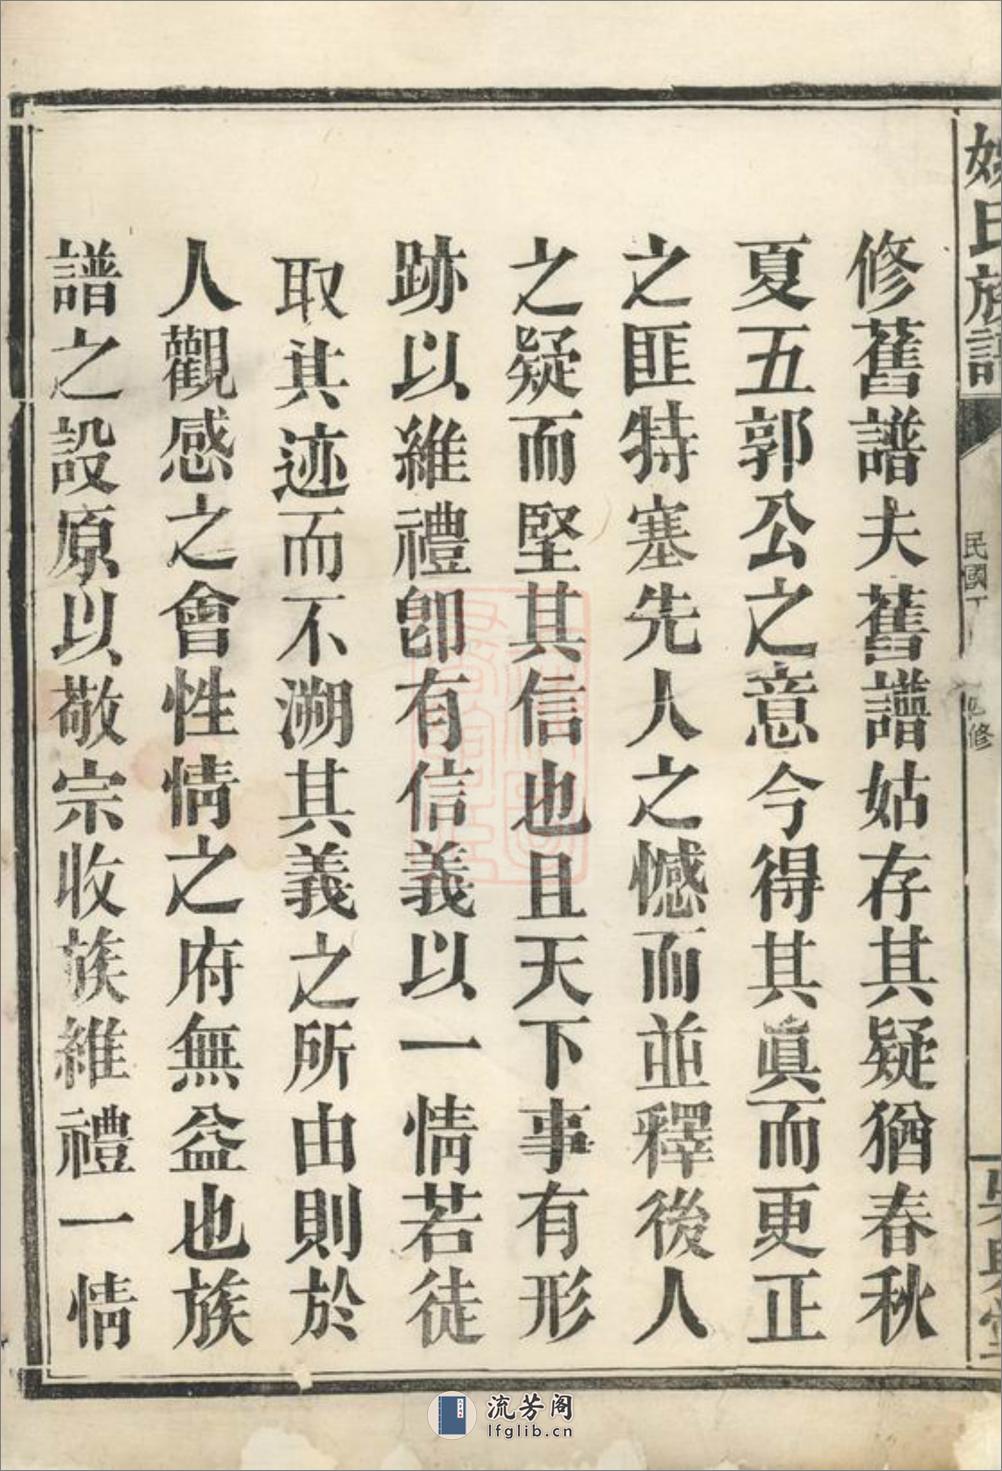 姚氏族譜
民國丁
四修
修舊譜夫舊譜姑存其疑猶春秋
夏五郭公之意今得其眞而更正
之匪特塞先人之憾而並釋後人
之疑而堅其信也且天下事有形
跡以維禮卽有信義以一情若徒
取其迹而不溯其義之所由則於
人觀感之會性情之府無益也族
譜之設原以敬宗收族維禮一情
流芳阁
lfglib.cn